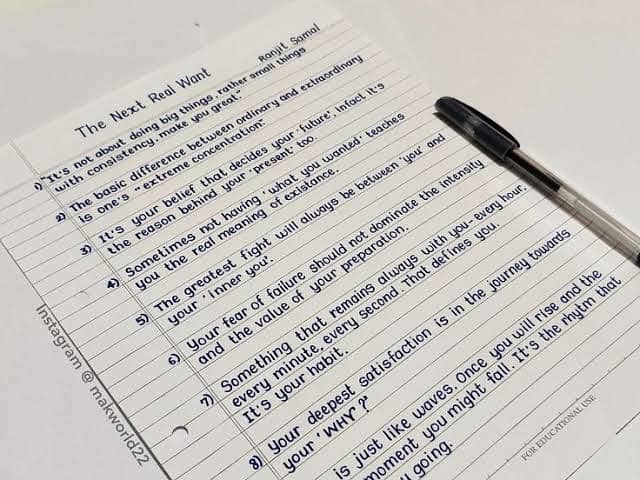 The Next Real Want
Ranjit Samal
1) "It's not about doing big things, rather small things
with consistency, make you great."
2) The basic difference between ordinary and extraordinary
is one's "extreme concentration".
3) It's your belief that decides your 'future', infact it's
the reason behind your 'present' too.
4) Sometimes not having 'what you wanted' teaches
you the real meaning of existance.
5) The greatest fight will always be between 'you' and
your 'inner you'.
6) Your fear of failure should not dominate the intensity
and the value of your preparation.
7) Something that remains always with you - every hour,
every minute, every second. That defines you.
It's your habit.
8) Your deepest satisfaction is in the journey towards
your 'WHY'?
is just like waves. Once you will rise and the
moment you might fall. It's the rhytm that
going.
FOR EDUCATIONAL USE
Instagram @ makworld22